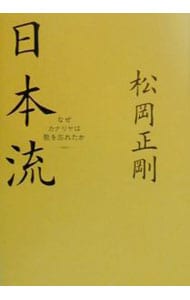 日本流
なぜ
カナリヤは
歌を忘れたか
松岡正剛